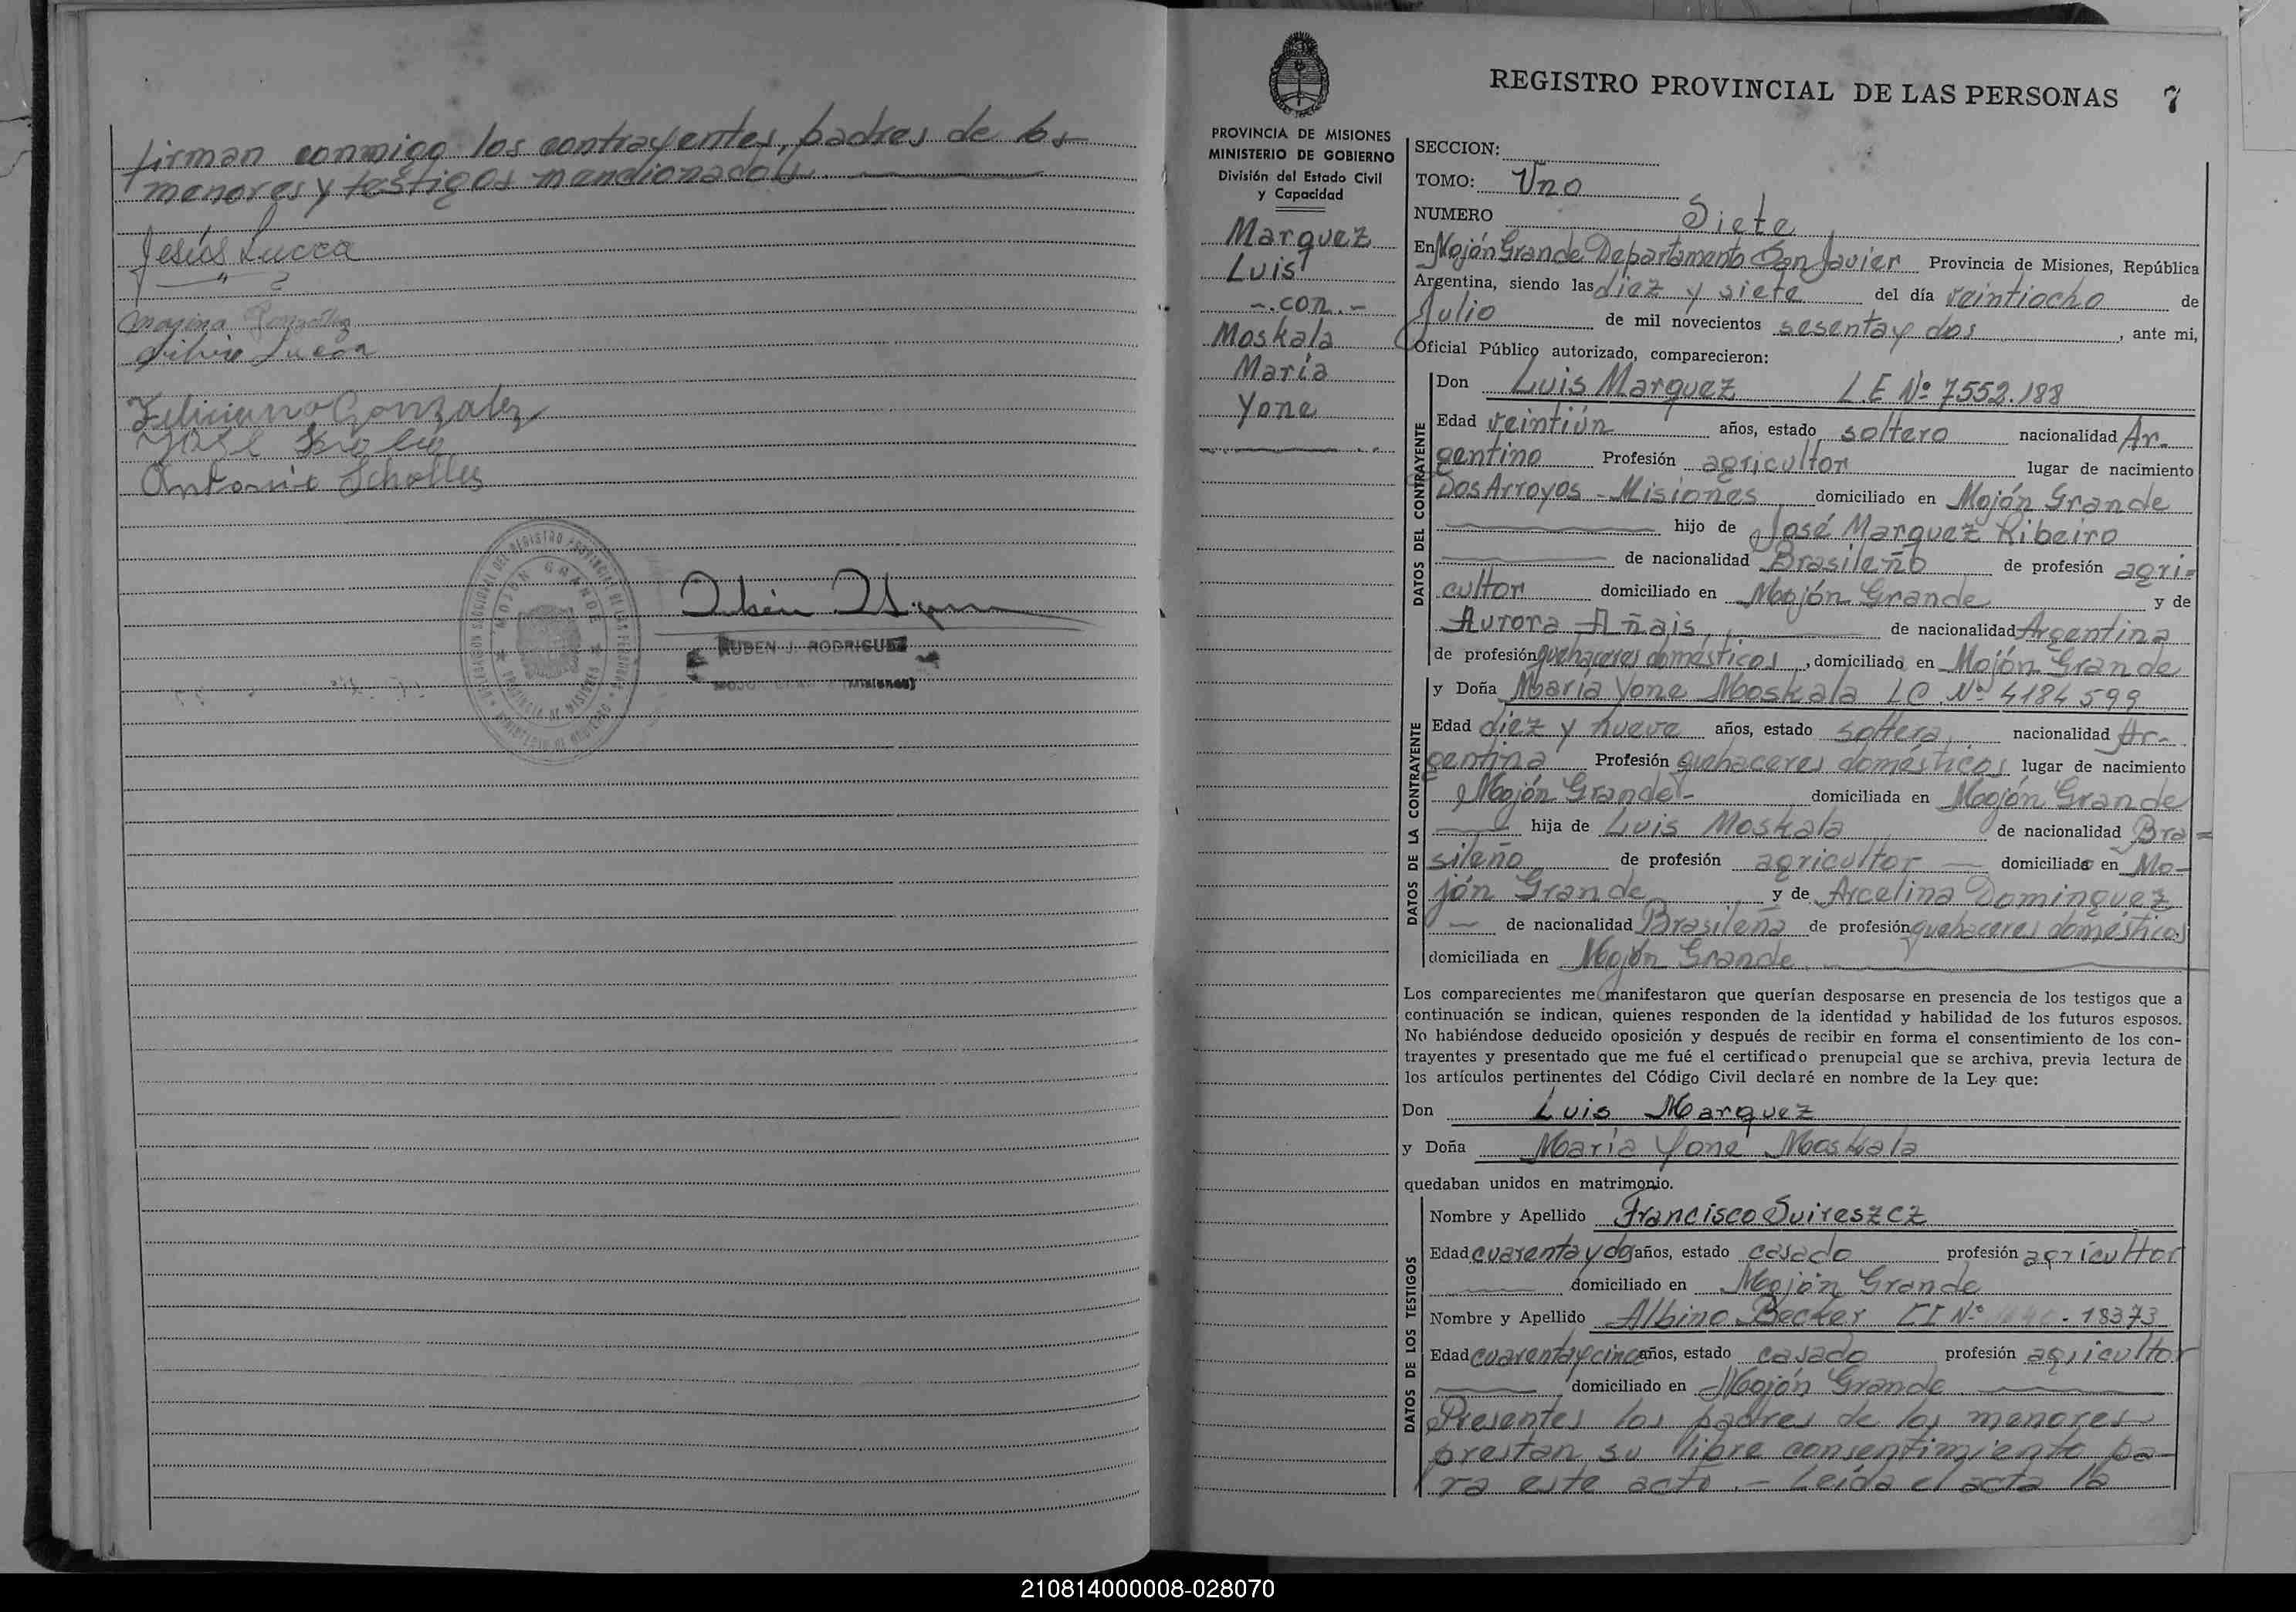 firman conmigo los contrayentes, padres de los
menores y testigos mencionados
Jesús Lucca
Silvio Lucca
Feliciano Gonzalez
José
Antonio Scholles
MOJON GRANDE
PROVINCIA DE MISIONES
RUBEN J. RODRIGUEZ
(Misiones)
REGISTRO PROVINCIAL DE LAS PERSONAS 7
PROVINCIA DE MISIONES
MINISTERIO DE GOBIERNO
División del Estado Civil
y Capacidad
Marquez
Luis
-.con.-
Moskala
María
Yone
SECCION:
TOMO: Uno
NUMERO Siete
En Mojón Grande Departamento San Javier Provincia de Misiones, República
Argentina, siendo las diez y siete del día veintiocho de
Julio de mil novecientos sesenta y dos, ante mi,
Oficial Público autorizado, comparecieron:
DATOS DEL CONTRAYENTE
Don Luis Marquez L E Nº 7552.188
Edad veintiún años, estado soltero nacionalidad Ar-
gentino Profesión agricultor lugar de nacimiento
Dos Arroyos - Misiones domiciliado en Mojón Grande
hijo de José Marquez Ribeiro
de nacionalidad Brasileño de profesión agri-
cultor domiciliado en Mojón Grande y de
Aurora Añais, de nacionalidad Argentina
de profesión quehaceres domésticos, domiciliado en Mojón Grande
DATOS DE LA CONTRAYENTE
y Doña María Yone Moskala L C Nº 4184599
Edad diez y nueve años, estado soltera, nacionalidad Ar-
gentina Profesión quehaceres domésticos lugar de nacimiento
Mojón Grande- domiciliada en Mojón Grande
hija de Luis Moskala de nacionalidad Bra=
sileño de profesión agricultor domiciliado en Mo-
jón Grande y de Arcelina Dominguez
de nacionalidad Brasileña de profesión quehaceres domésticos
domiciliada en Mojón Grande.
Los comparecientes me manifestaron que querían desposarse en presencia de los testigos que a
continuación se indican, quienes responden de la identidad y habilidad de los futuros esposos.
No habiéndose deducido oposición y después de recibir en forma el consentimiento de los con-
trayentes y presentado que me fué el certificado prenupcial que se archiva, previa lectura de
los artículos pertinentes del Código Civil declaré en nombre de la Ley que:
Don Luis Marquez
y Doña María Yone Moskala
quedaban unidos en matrimonio.
DATOS DE LOS TESTIGOS
Nombre y Apellido Francisco Suireszcz
Edad cuarenta y dos años, estado casado profesión agricultor
domiciliado en Mojón Grande
Nombre y Apellido Albino Becker C I Nº - 18373
Edad cuarenta y cinco años, estado casado profesión agricultor
domiciliado en Mojón Grande
Presentes los padres de los menores
prestan su libre consentimiento pa-
ra este acto.- Leída el acta la
210814000008-028070